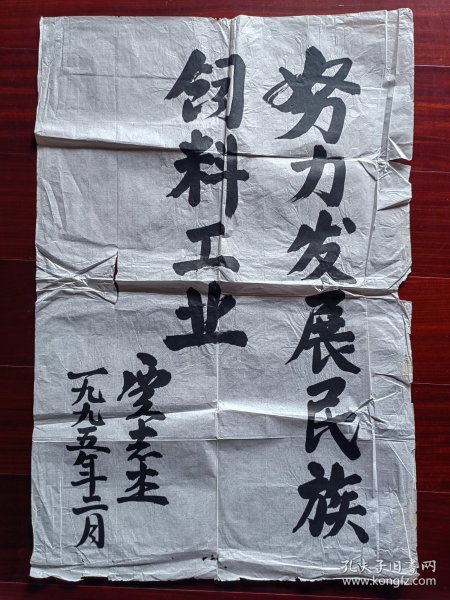 努力发展民族
饲料工业
贾志杰
一九九五年十二月
孔夫子旧书网
www.kongfz.com